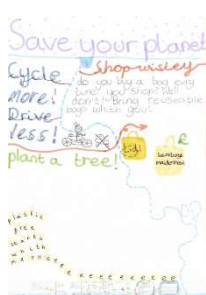 Save your planet
Cycle
more!
Drive
less!
Shop wisley
do you buy a bag evry
time you shop? Well
don't! Bring reuseable
bags with you!
plant a tree!
plastic
free
starts
with
meeeeeeeeeeeeee